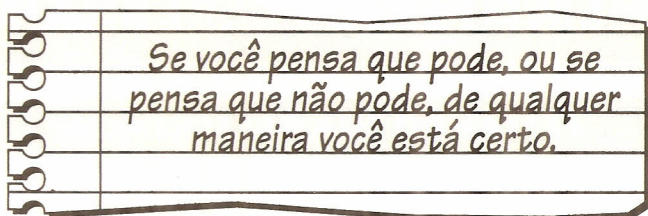 Se você pensa que pode, ou se
pensa que não pode, de qualquer
maneira você está certo.